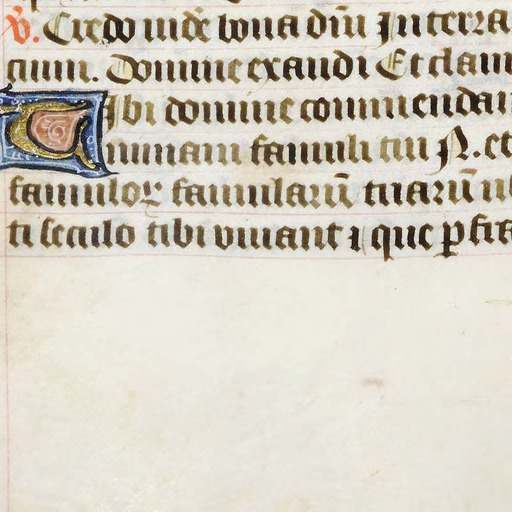 V. Credo uide bona dñi In terra
cium. Domine exaudi Et clam
Tibi domine commendam
animam famuli tui N. et
famuloꝝ famularū tuarū ut
ti seculo tibi uiuant ⁊ que